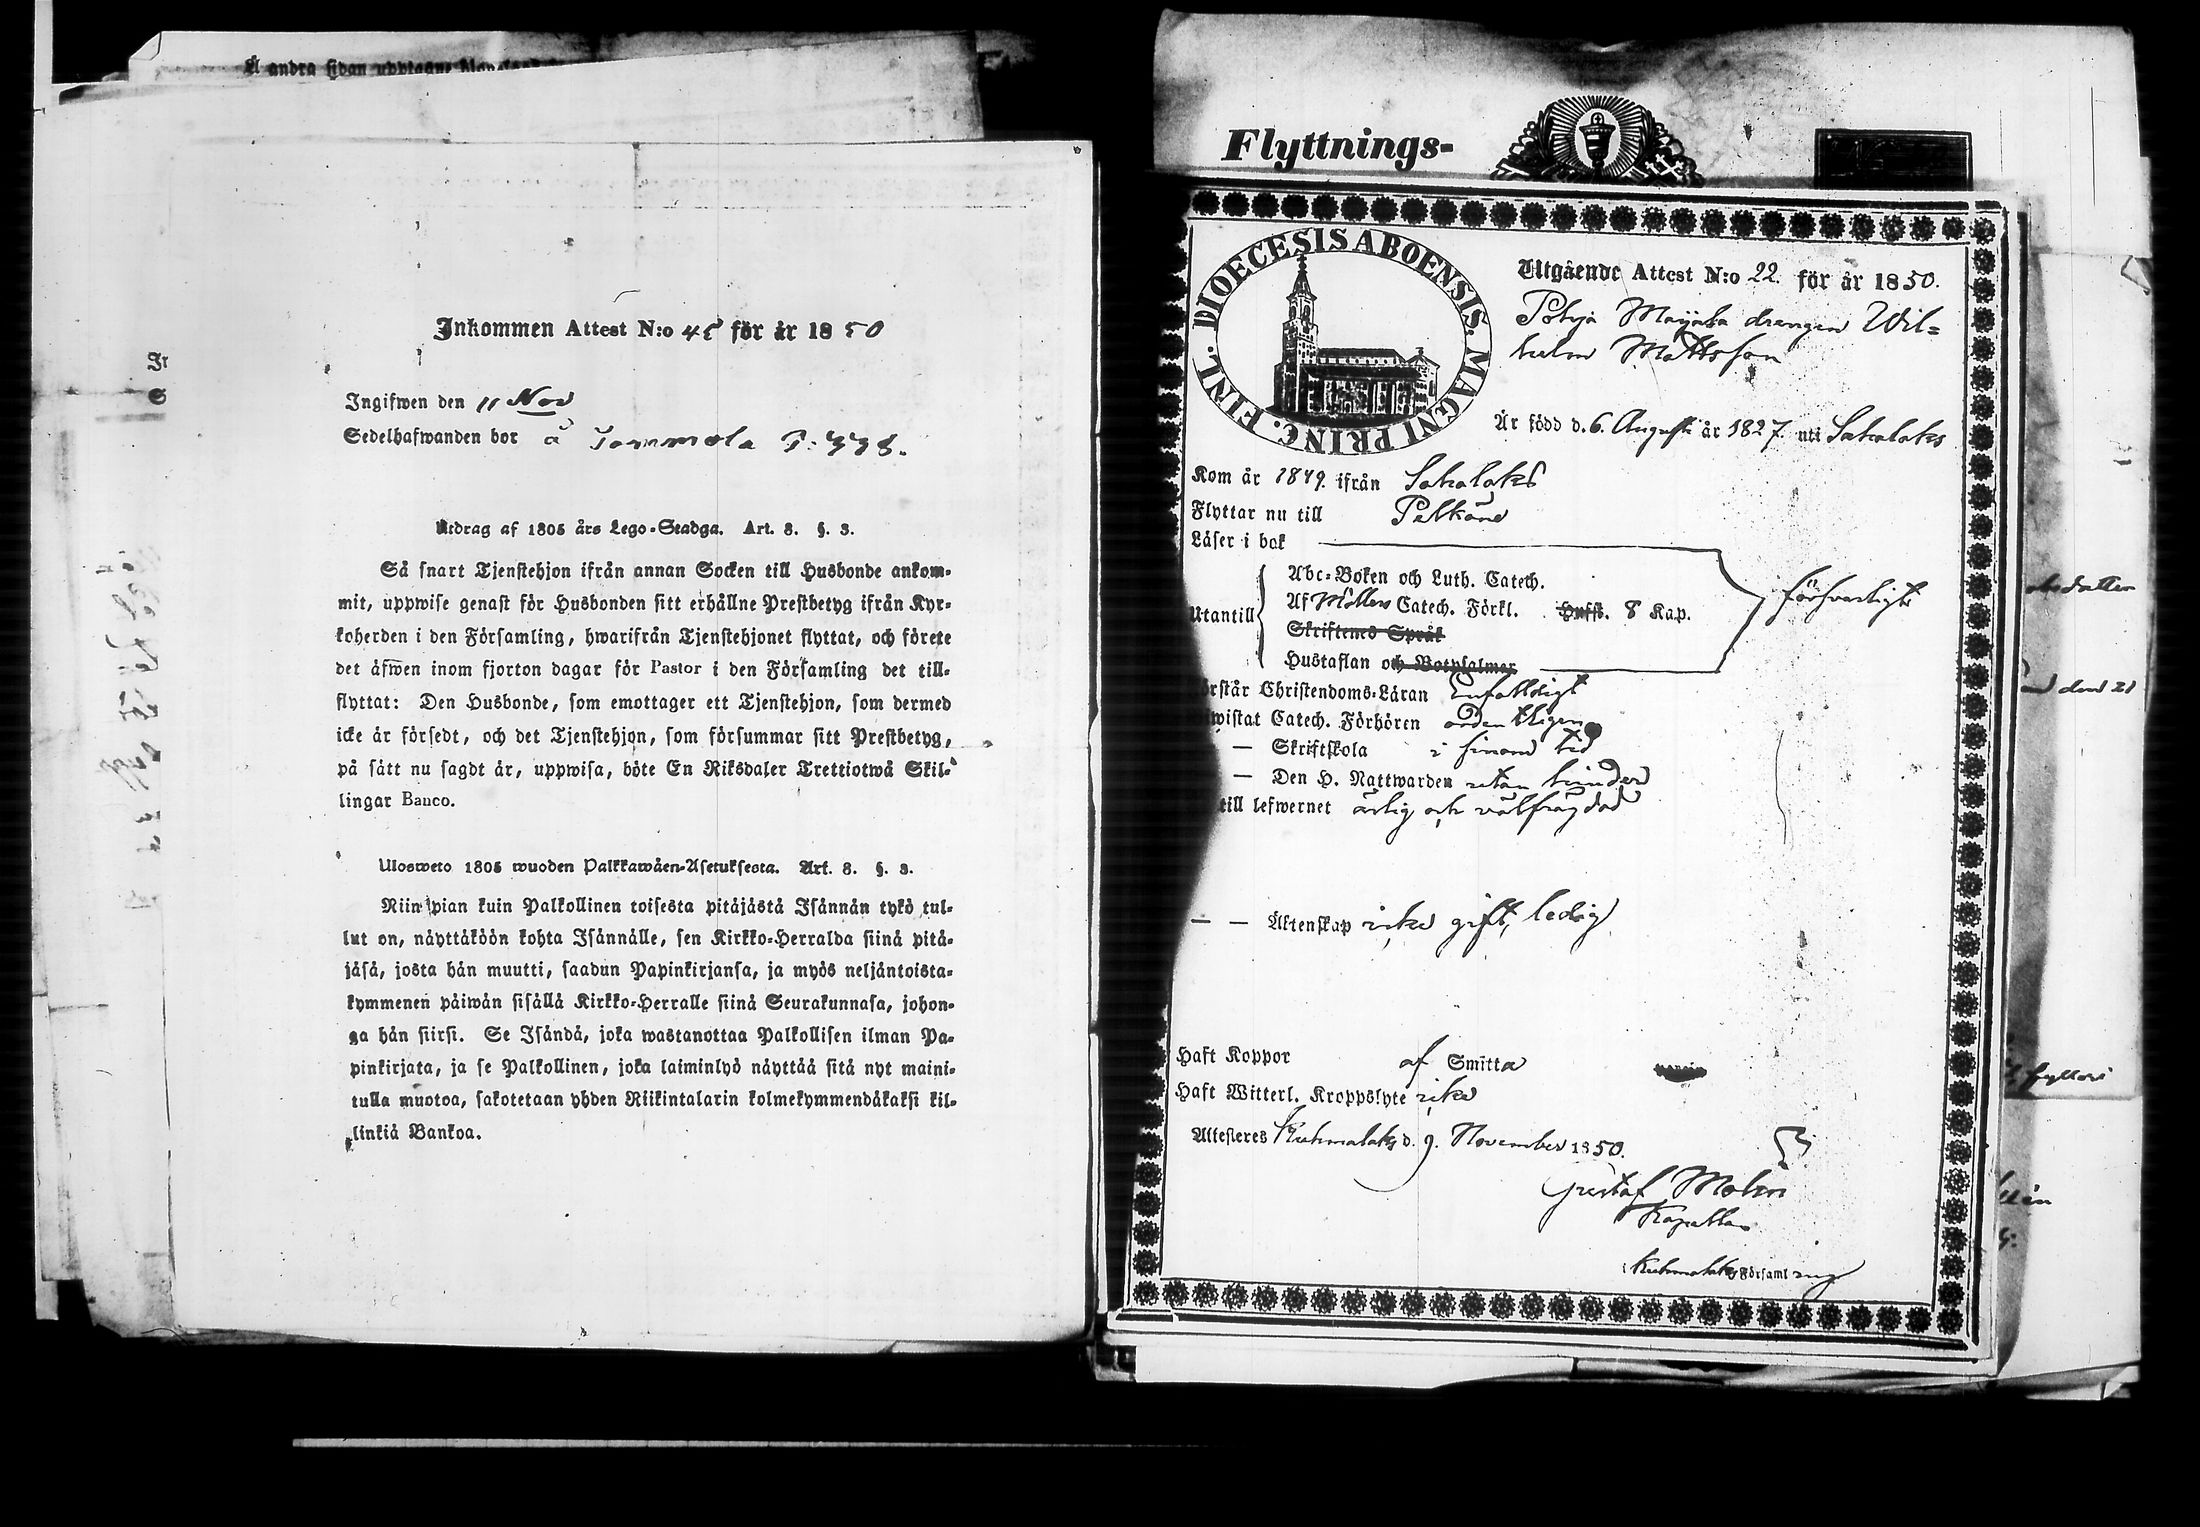 Å andra sidan upptagne
Inkommen Attest N:o 45 för år 1850
Ingifwen den 11 Nov
Sedelhafwanden bor å Tommola P. 448.
Utdrag af 1805 års Lego-Stadga. Art. 8. §. 3.
Så snart Tjenstehjon ifrån annan Socken till Husbonde ankom-
mit, uppwise genast för Husbonden sitt erhållne Prestbetyg ifrån Kyr-
koherden i den Församling, hwarifrån Tjenstehjonet flyttat, och förete
det äfwen inom fjorton dagar för Pastor i den Församling det till-
flyttat: Den Husbonde, som emottager ett Tjenstehjon, som dermed
icke är försedt, och det Tjenstehjon, som försummar sitt Prestbetyg,
på sätt nu sagdt är, uppwisa, böte En Riksdaler Trettiotwå Skil-
lingar Banco.
Ulosweto 1805 wuoden Palkkawäen-Asetuksesta. Art. 8. §. 3.
Niin pian kuin Palkollinen toisesta pitäjästä Isännän tykö tul-
lut on, näyttäköön kohta Isännälle, sen Kirkko-Herralda siinä pitä-
jäsä, josta hän muutti, saadun Papinkirjansa, ja myös neljäntoista-
kymmenen päiwän sisällä Kirkko-Herralle siinä Seurakunnasa, johon-
ga hän siirsi. Se Isändä, joka wastanottaa Palkollisen ilman Pa-
pinkirjata, ja se Palkollinen, joka laiminlyö näyttää sitä nyt maini-
tulla muotoa, sakotetaan yhden Riikintalarin kolmekymmendäkaksi kil-
linkiä Bankoa.
Flyttnings-
DIOECESIS ABOENSIS. MAGNI PRINC. FINL.
Utgående Attest N:o 22. för år 1850.
Pohja Maijala drengen Wil=
helm Mattsson
Är född d. 6. Augusti år 1827. uti Sahalaks
Kom år 1849. ifrån Sahalaks
Flyttar nu till Pelkäne
Läser i bok
Utantill
Abc-Boken och Luth. Catech.
Af Möllers Catech. Förkl. Husst. 8 Kap.
försvarligt
Skriftenes Språk
Hustaflan och Botpsalmer
örstår Christendoms-Läran Enfaldigt
wistat Catech. Förhören ordentligen
— Skriftskola i sinom tid
— Den H. Nattwarden utan hinder
till lefwernet ärlig och välfrägdad
— — Äktenskap icke gift, ledig
Haft Koppor af Smitta
Haft Witterl. Kroppslyte icke
Attesteres Kuhmalaks d. 9. November 1850.
Gustaf Molin
Kapellan
i Kuhmalaks Församling